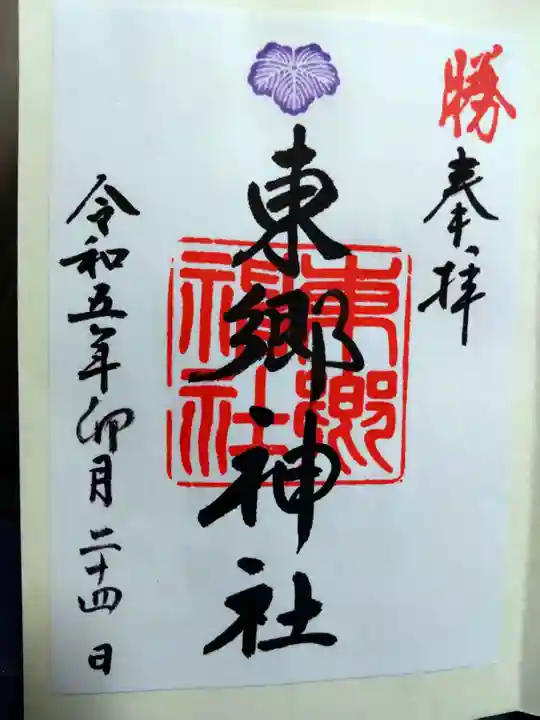 勝
奉拝
東郷神社
東郷神社
令和五年卯月二十四日